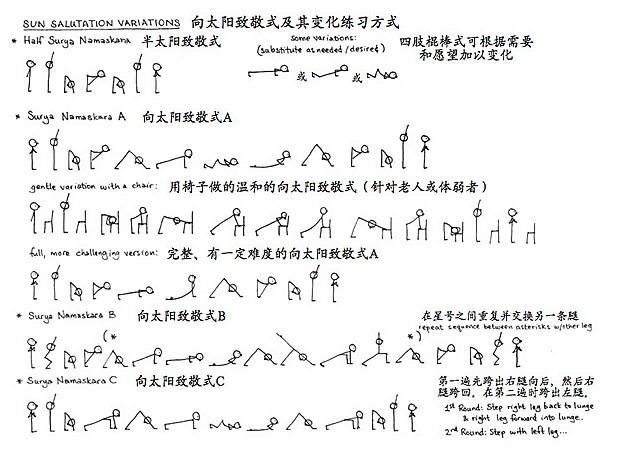 SUN SALUTATION VARIATIONS 向太阳致敬式及其变化练习方式
* Half Surya Namaskara 半太阳致敬式
some variations:
(substitute as needed/desired)
四肢棍棒式可根据需要
和愿望加以变化
或 或
* Surya Namaskara A 向太阳致敬式A
gentle variation with a chair: 用椅子做的温和的向太阳致敬式(针对老人或体弱者)
full, more challenging version: 完整、有一定难度的向太阳致敬式A
* Surya Namaskara B 向太阳致敬式B
在星号之间重复并交换另一条腿
repeat sequence between asterisks w/other leg
(* *)
* Surya Namaskara C 向太阳致敬式C
第一遍先跨出右腿向后，然后右
腿跨回。在第二遍时跨出左腿。
1st Round: Step right leg back to lunge
& right leg forward into lunge.
2nd Round: Step with left leg...